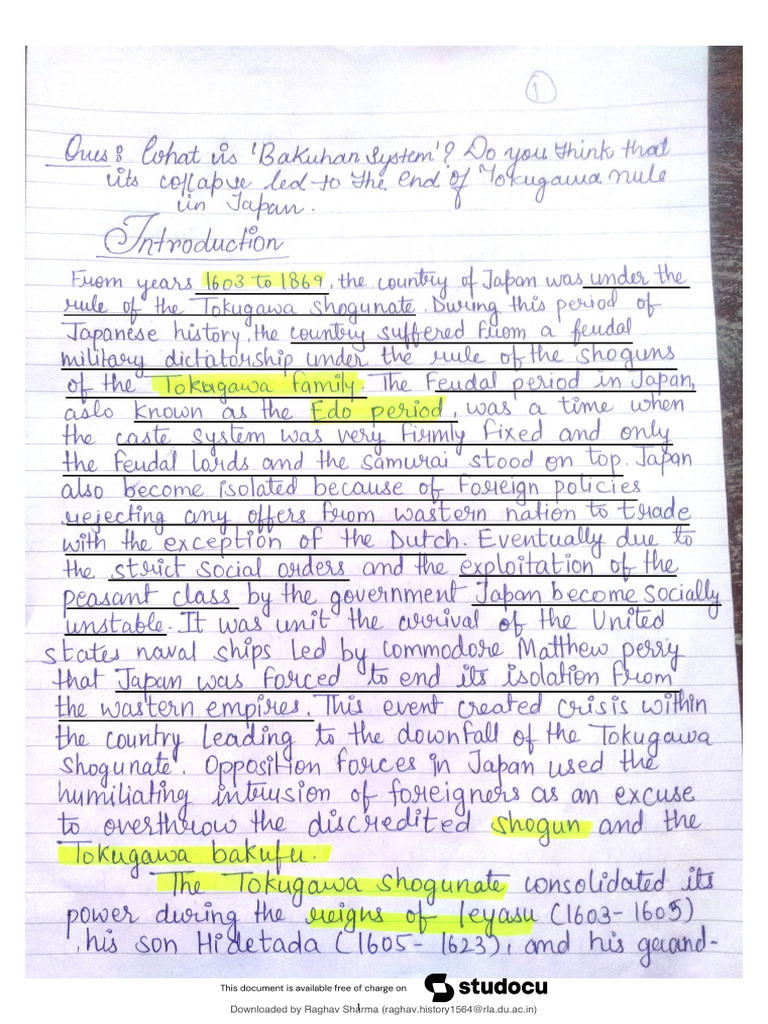 1
Ques: What is 'Bakuhan System'? Do you think that
its collapse led to the end of Tokugawa rule
in Japan.
Introduction
From years 1603 to 1869, the country of Japan was under the
rule of the Tokugawa shogunate. During this period of
Japanese history, the country suffered from a feudal
military dictatorship under the rule of the shoguns
of the Tokugawa family. The Feudal period in Japan,
aslo known as the Edo period, was a time when
the caste system was very firmly fixed and only
the feudal lards and the samurai stood on top. Japan
also become isolated because of foreign policies
rejecting any offers from wastern nation to trade
with the exception of the Dutch. Eventually due to
the strict social orders and the exploitation of the
peasant class by the government Japan become socially
unstable. It was unit the arrival of the United
states naval ships led by commodore Matthew perry
that Japan was forced to end its isolation from
the wastern empires. This event created crisis within
the country leading to the downfall of the Tokugawa
shogunate. Opposition forces in Japan used the
humiliating intrusion of foreigners as an excuse
to overthrow the discredited shogun and the
Tokugawa bakufu.
The Tokugawa shogunate consolidated its
power during the reigns of Ieyasu (1603-1605)
, his son Hidetada (1605-1623), and his grand-
This document is available free of charge on studocu
1
Downloaded by Raghav Sharma (raghav.history1564@rla.du.ac.in)